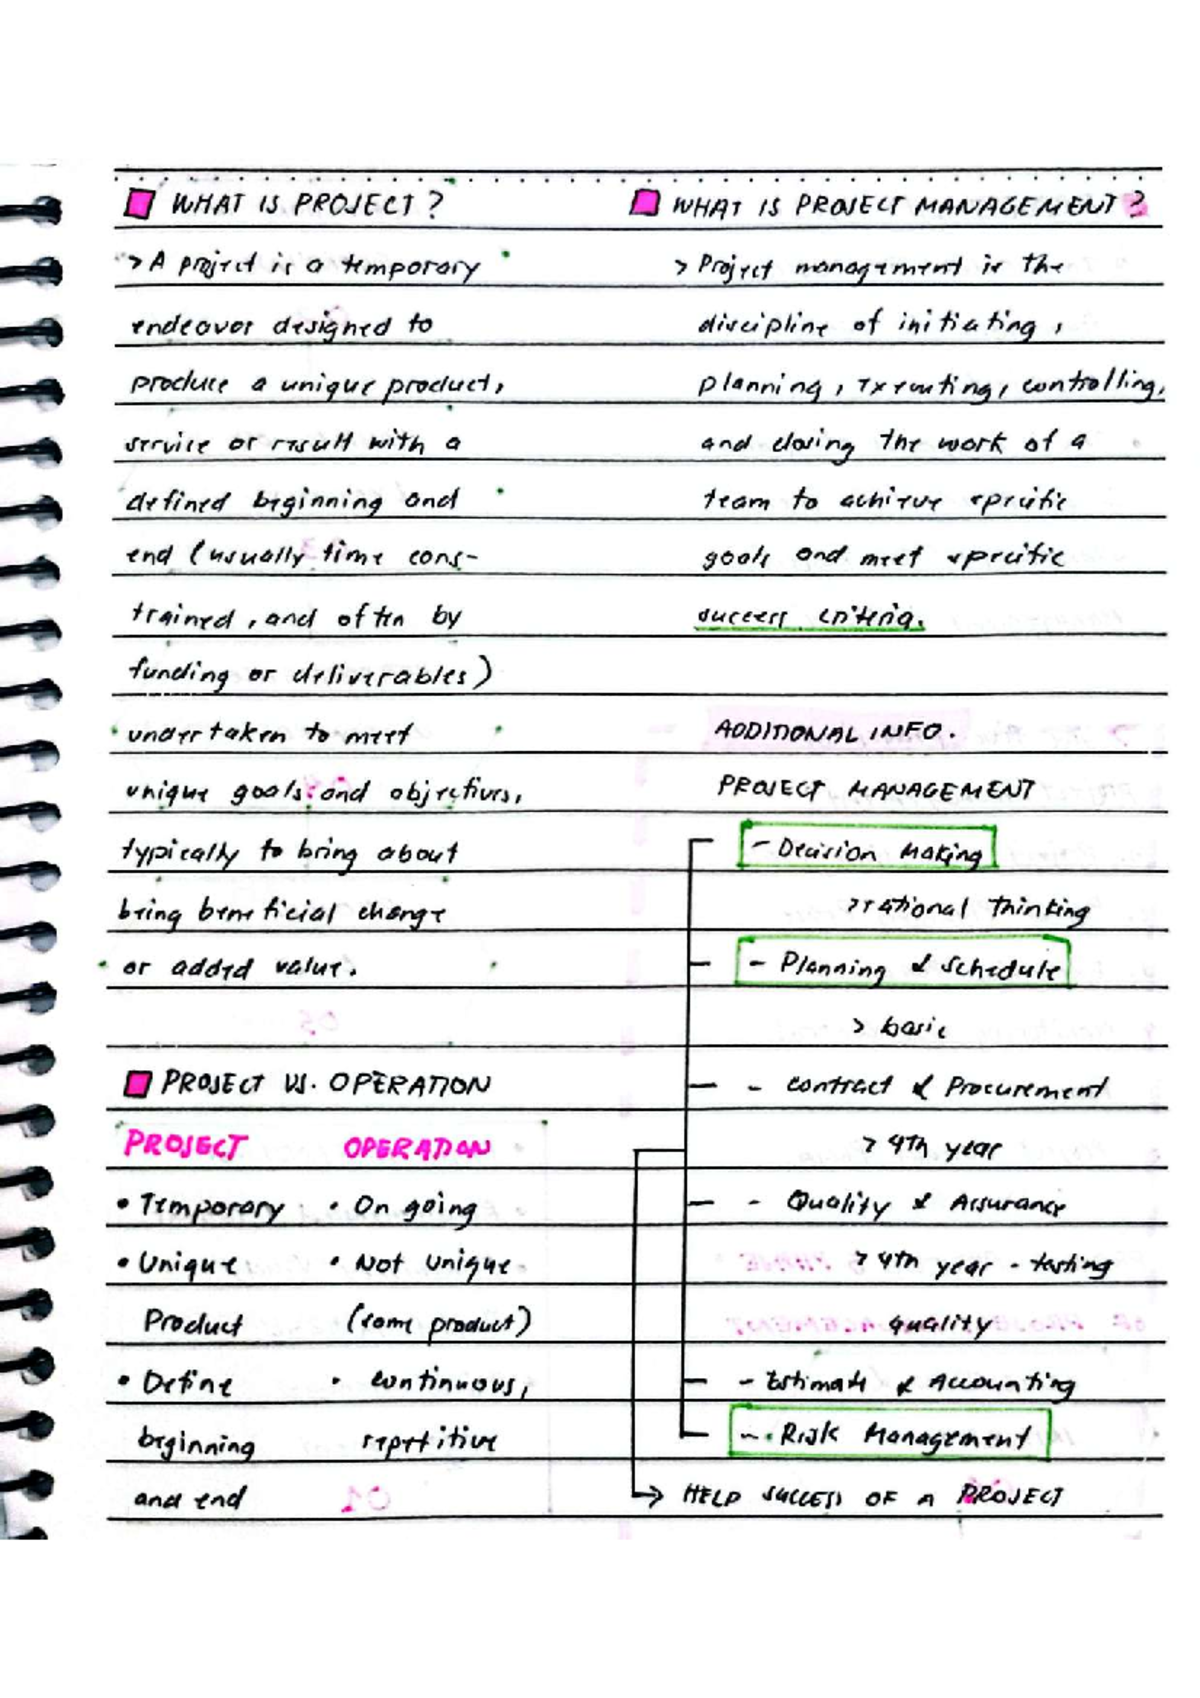 WHAT IS PROJECT?
> A project is a temporary
endeavor designed to
produce a unique product,
service or result with a
defined beginning and
end (usually time cons-
trained, and often by
funding or deliverables)
undertaken to meet
unique goals and objectives,
typically to bring about
being beneficial change
or added value.
PROJECT VS. OPERATION
PROJECT OPERATION
• Temporary • On going
• Unique • Not unique
Product (same product)
• Define • continuous,
beginning repetitive
and end
WHAT IS PROJECT MANAGEMENT?
> Project management is the
discipline of initiating,
planning, executing, controlling,
and closing the work of a
team to achieve specific
goals and meet specific
success criteria.
ADDITIONAL INFO.
PROJECT MANAGEMENT
- Decision Making
> rational thinking
- Planning & Schedule
> basic
- Contract & Procurement
> 4th year
- Quality & Assurance
> 4th year - testing
quality
- Estimate & Accounting
- Risk Management
HELP SUCCESS OF A PROJECT